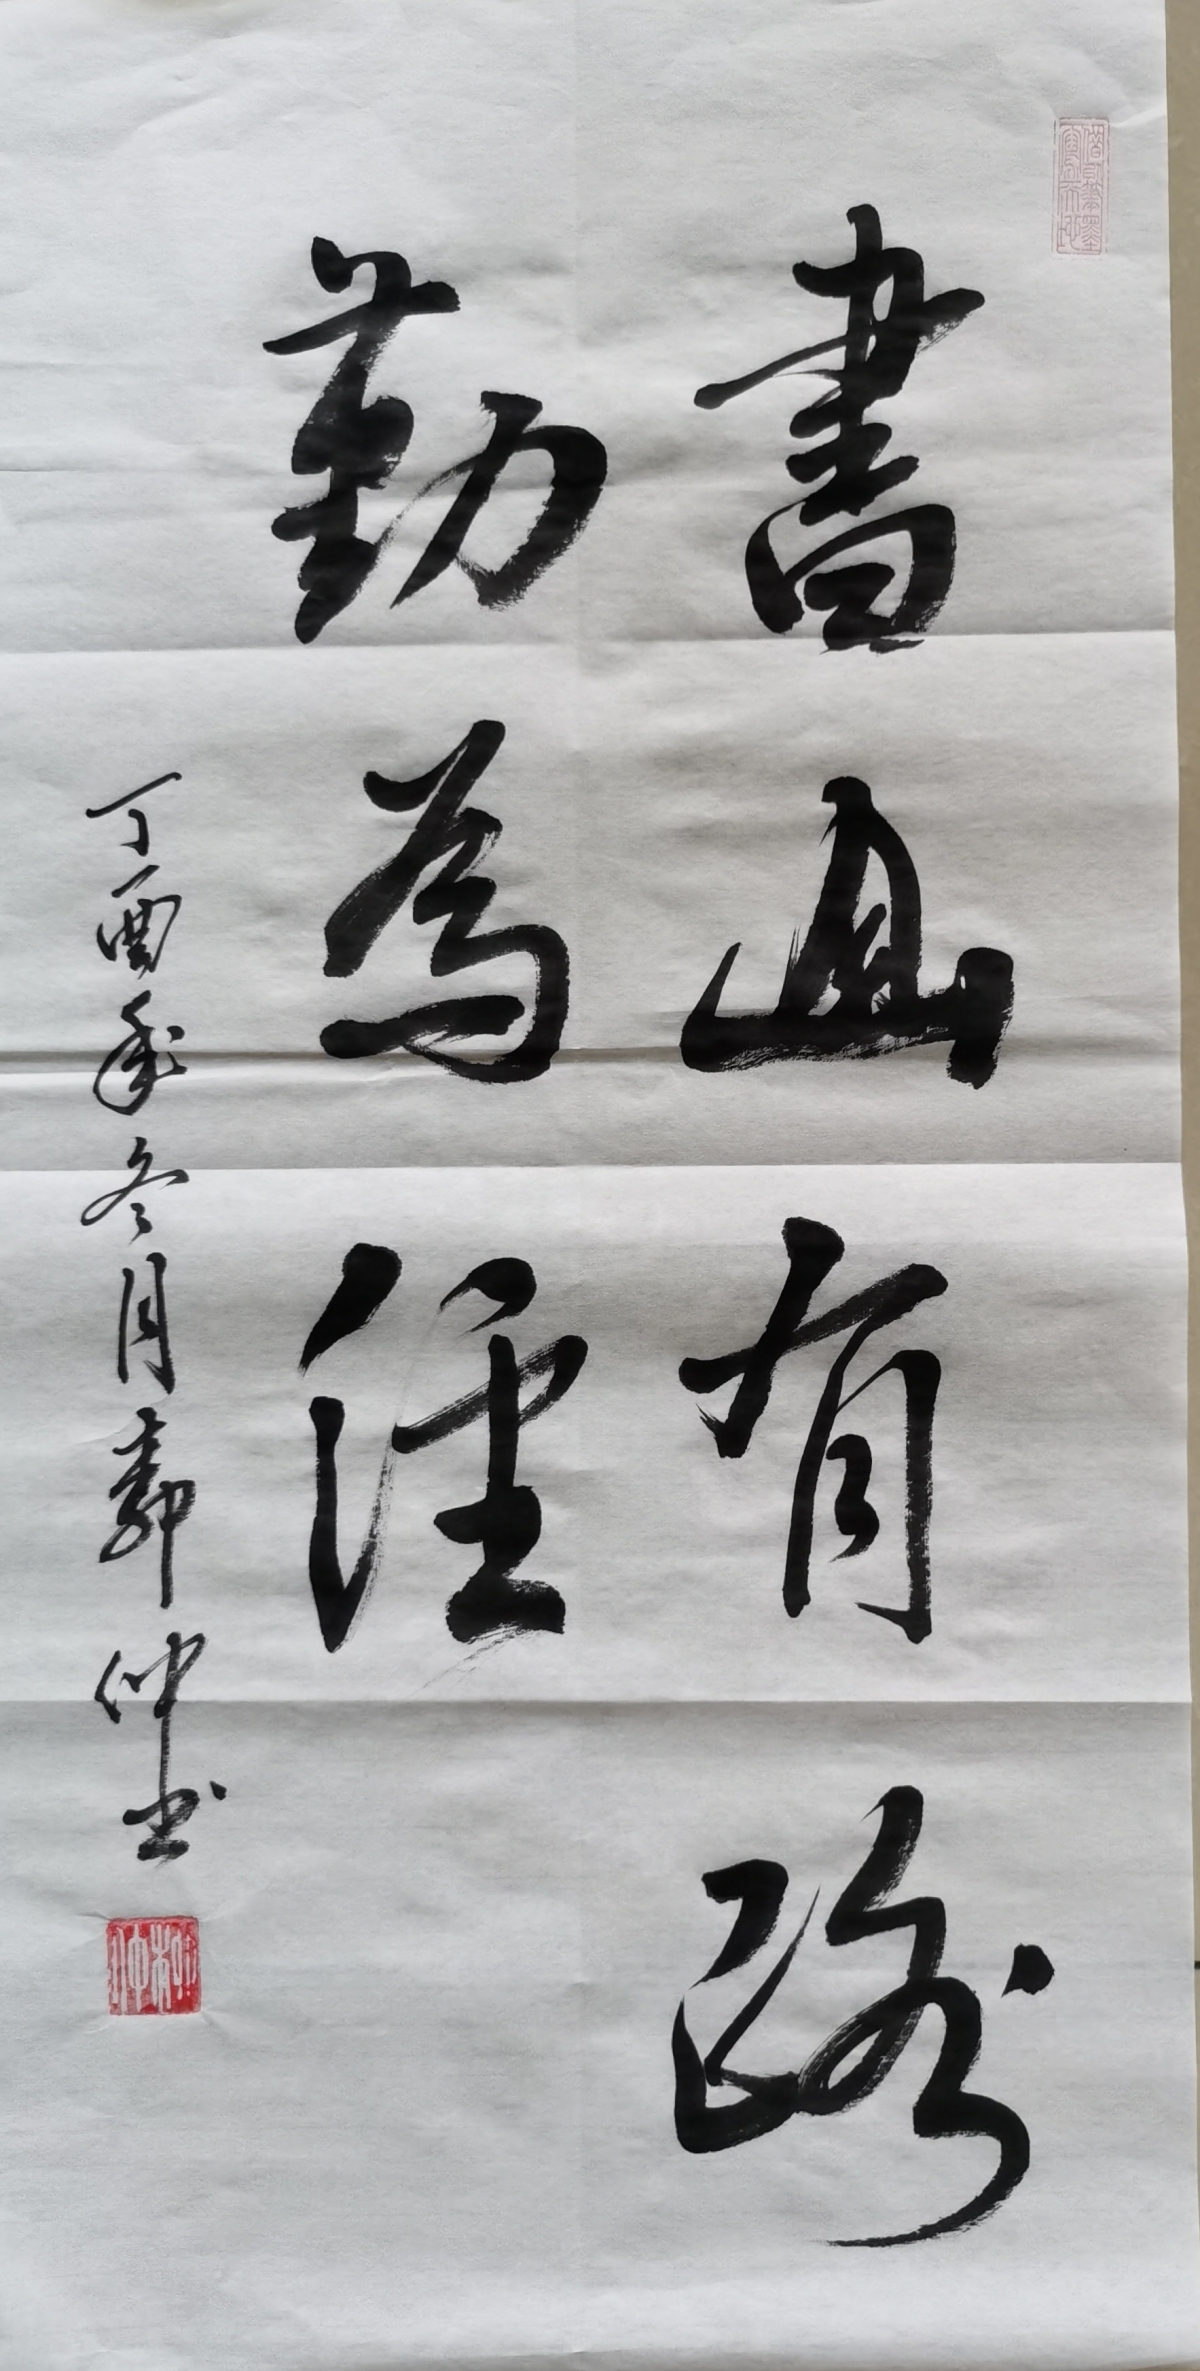 書山有路
勤為徑
丁酉年冬月郭仲書